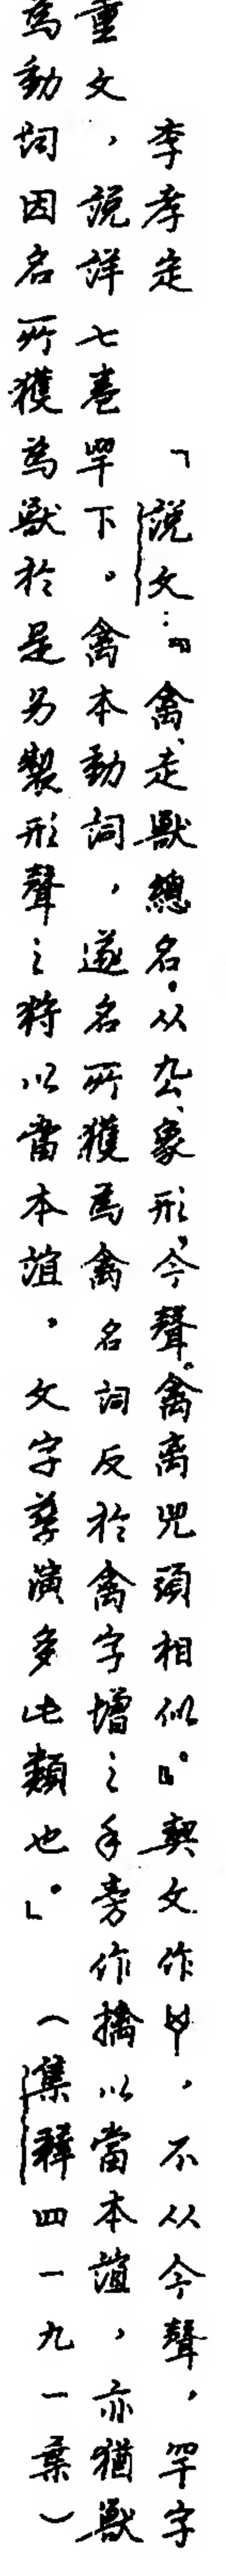 李孝定　「說文：『禽、走獸總名。从厹、象形，今聲。禽离兕頭相似。』契文作，不从今聲，罕字
重文，說詳七卷罕下。禽本動詞，遂名所獲為禽名詞反於禽字增之手旁作擒以當本誼，亦猶獸
為動詞因名所獲為獸於是另製形聲之狩以當本誼。文字孳演多此類也。」（集釋四一九一葉）